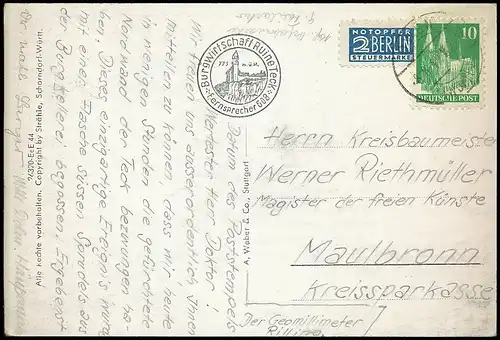 Datum des Poststempels
Wertester Herr Doktor!
Wir freuen uns ausserordentlich Ihnen
mitteilen zu können, dass wir heute
in wenigen Stunden die gefürchtete
Nordwand der Teck bezwungen ha-
ben. Dieses einzigartige Ereignis wurde
mit einer Flasche süssen Sprudels aus
der Burgkellerei begossen. Ergebenst
Burgwirtschaft Ruine Teck
775 m ü. M.
Fernsprecher Güb
NOTOPFER
2 BERLIN
STEUERMARKE
10
DEUTSCHE POST
Herrn Kreisbaumeister
Werner Riethmüller
Magister der freien Künste
Maulbronn
Kreissparkasse
Der Geomillimeter
Rilling
A. Weber & Co., Stuttgart
74370-Ec E 44
Alle rechte vorbehalten. Copyright by Strähle, Schorndorf-Würn.